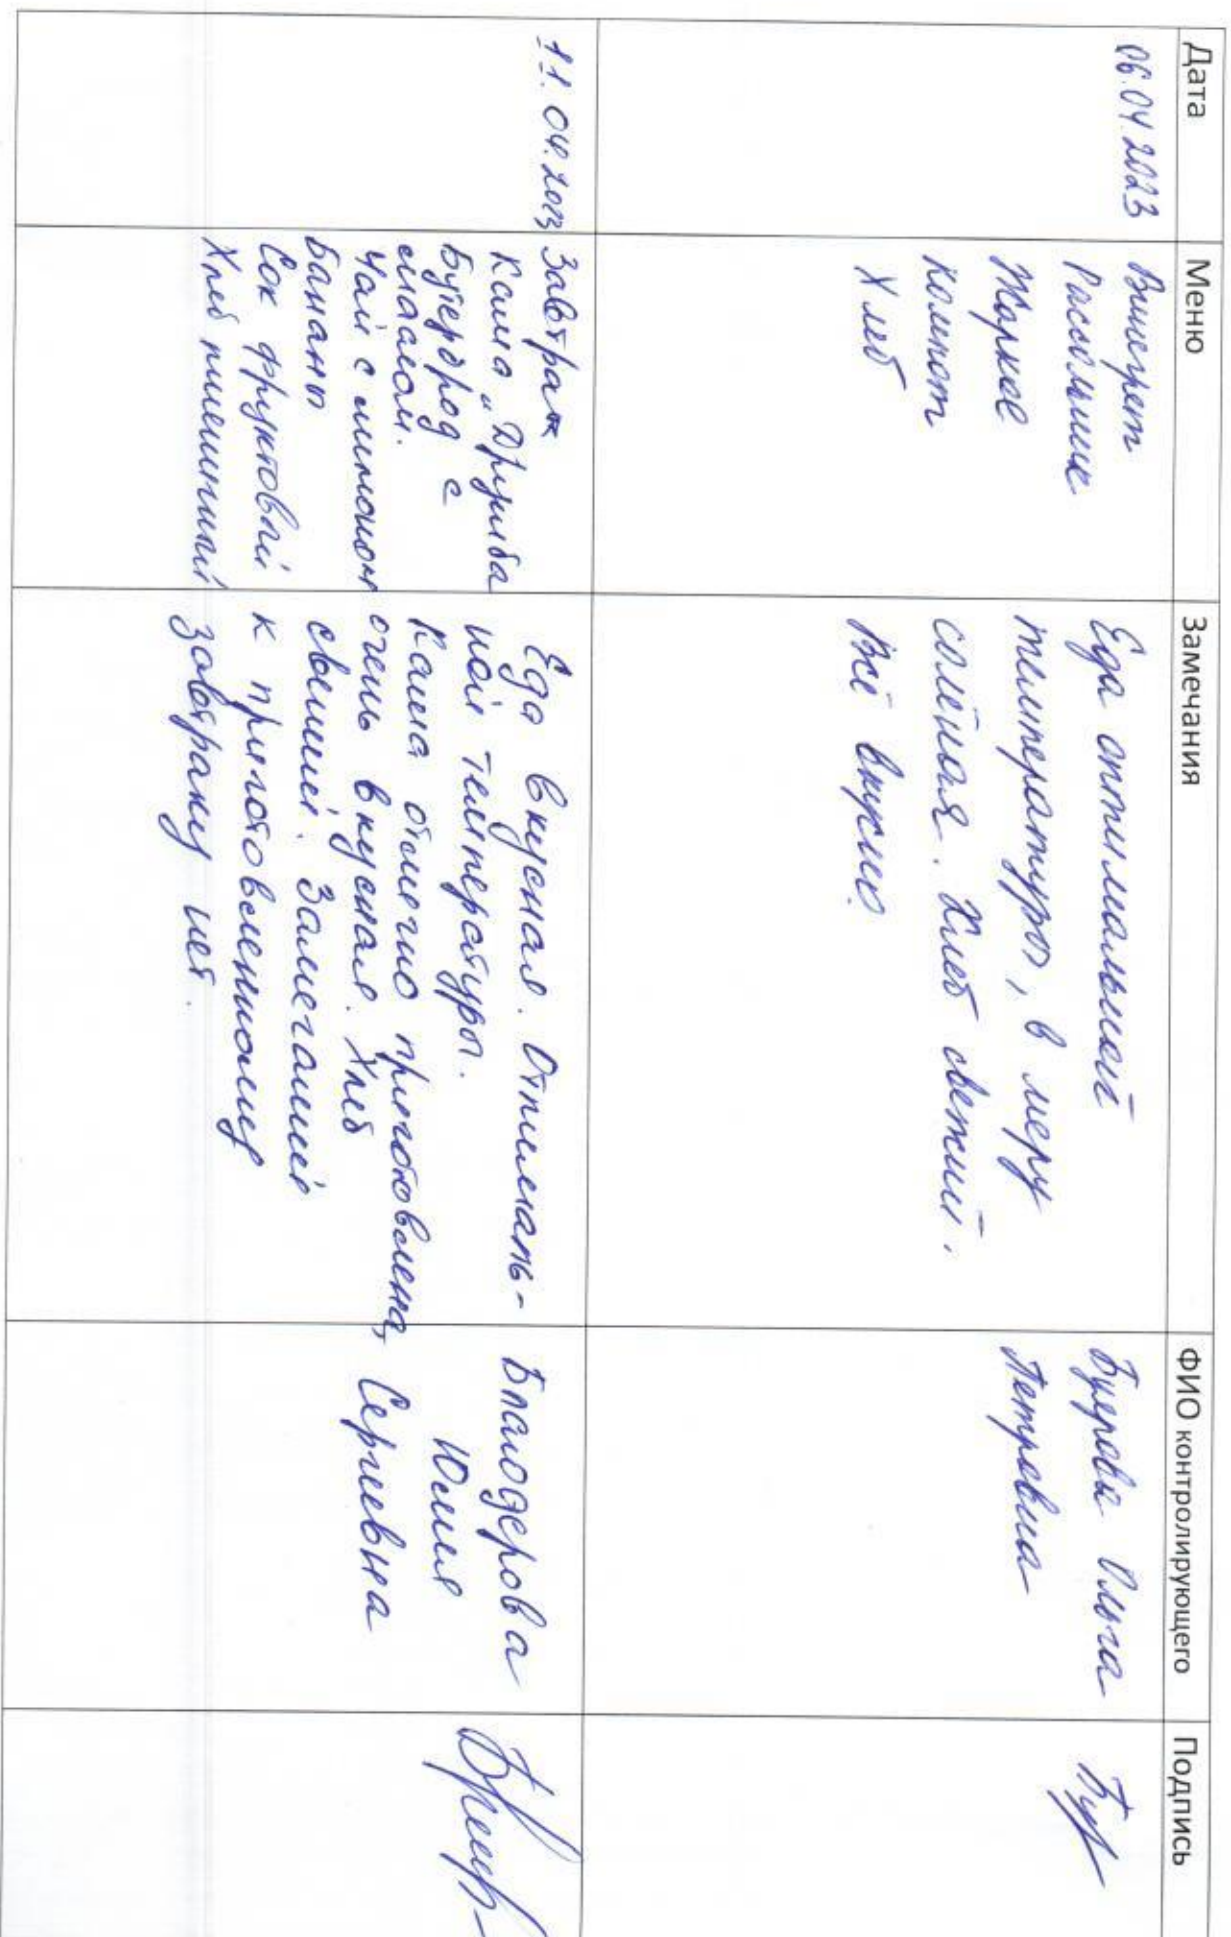 Дата Меню Замечания ФИО контролирующего Подпись
06.04.2023
Винегрет
Рассольник
Жаркое
Компот
Хлеб
Еда оптимальной
температуры, в меру
солёная. Хлеб свежий.
Всё вкусно.
Ольга
Петровна
11.04.2023
Завтрак
Каша "Дружба
Бутерброд с
маслом.
Чай с лимоном
Бананы
Сок фруктовый
Хлеб пшеничный
Еда вкусная. Отпималь-
ной температуры.
Каша отлично приготовлена,
очень вкусная. Хлеб
свежий. Замечаний
к приготовленному
завтраку нет.
Блаодерова
Юлия
Сергеевна